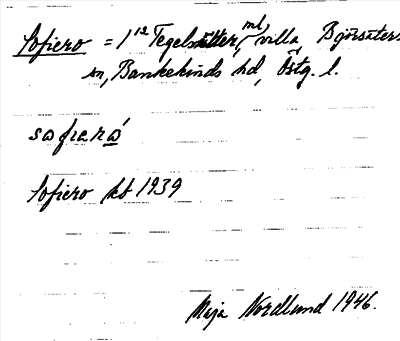 Sofiero = 1¹² Tegelsätter, ml, villa, Björsäters
sn, Bankekinds hd, Östg. l.
sofierò
Sofiero kb 1939
Maja Nordlund 1946.